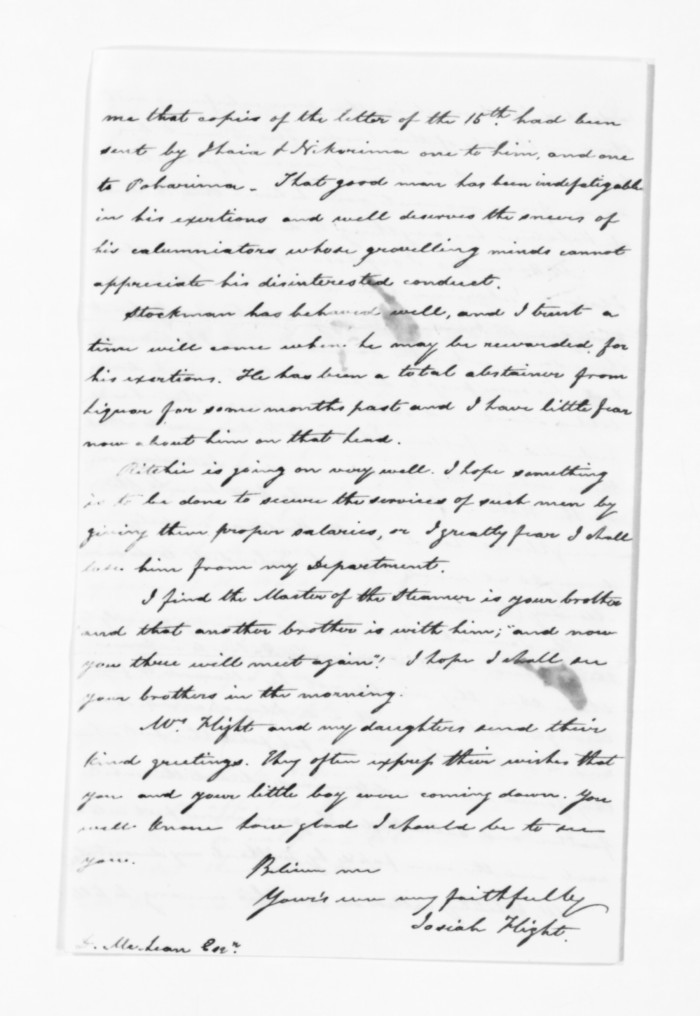 me that copies of the letter of the 15th had been
sent by Ihaia & Nikorima one to him, and one
to Poharima. That good man has been indefatigable
in his exertions and well deserves the sneers of
his calumniators whose grovelling minds cannot
appreciate his disinterested conduct.
Stockman has behaved well, and I trust a
time will come when he may be rewarded for
his exertions. He has been a total abstainer from
liquor for some months past and I have little fear
now about him on that head.
Ritchie is going on very well. I hope something
is to be done to secure the services of such men by
giving them proper salaries, or I greatly fear I shall
lose him from my Department.
I find the Master of the Steamer is your brother
and that another brother is with him; "and now
you three will meet again"! I hope I shall see
your brothers in the morning.
Mrs Flight and my daughters send their
kind greetings. They often express their wishes that
you and your little boy were coming down. You
well know how glad I should be to see
you.
Believe me
Your's very faithfully
Josiah Flight.
D. McLean Esqr.